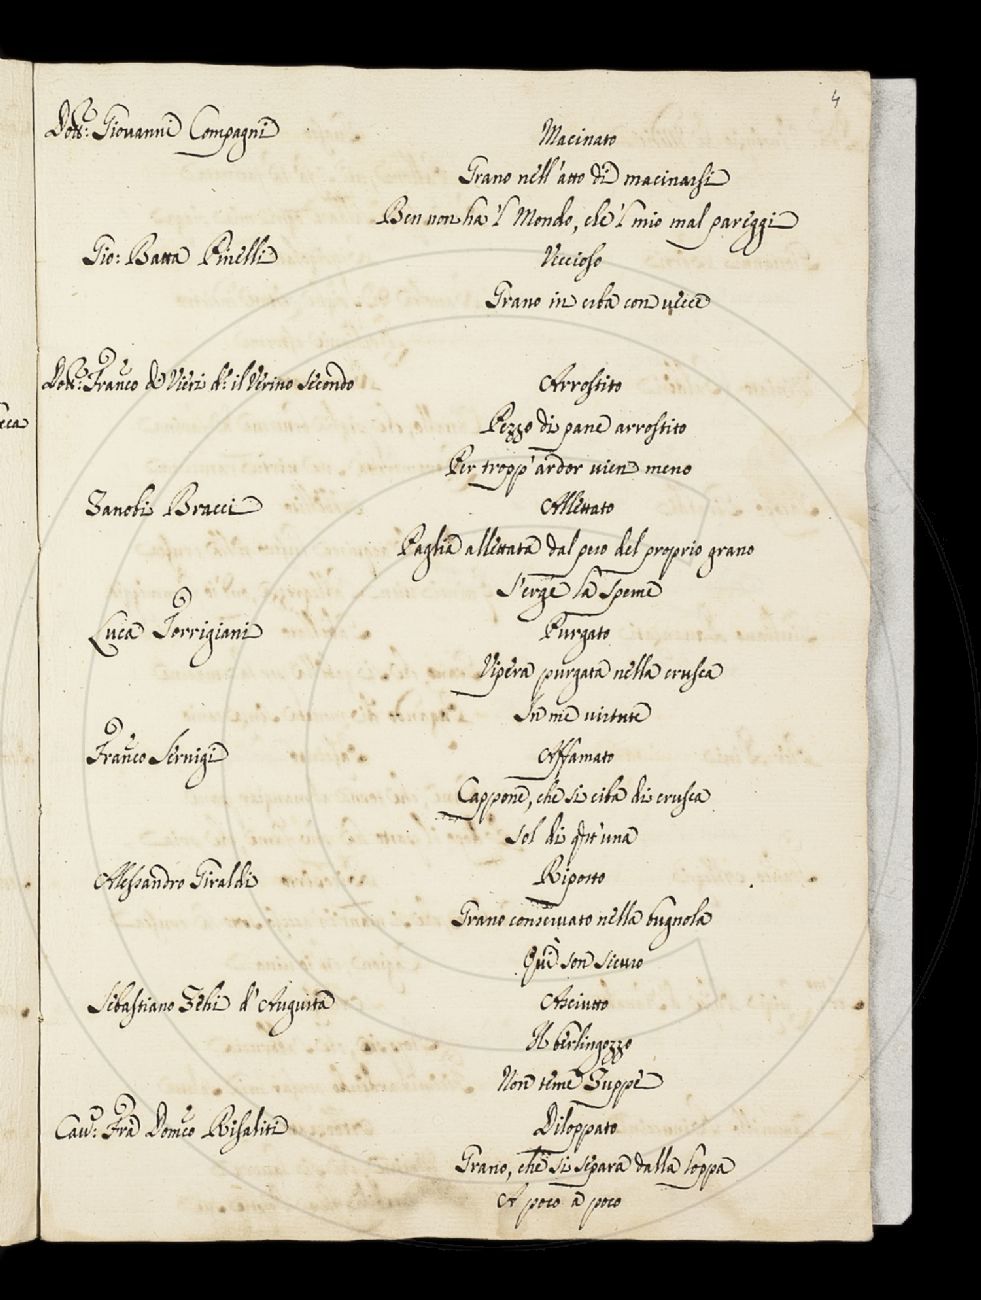 4
Dott: Giovanne Compagni
Macinato
Grano nell'atto di macinarsi
Ben non ha 'l Mondo, che 'l mio mal pareggi
Gio: Batta Pinelli
Veccioso
Grano in erba con vecce
Dott: Franco de Vieri do: il Verino secondo
Arrostito
Pezzo di pane arrostito
Per tropp'ardor vien meno
Zanobi Bracci
Allettato
Paglia allettata dal peso del proprio grano
S'erge la speme
Luca Torrigiani
Purgato
Vipera purgata nella crusca
In me virtute
Franco Sernigi
Affamato
Cappone, che si ciba di crusca
Sol di quest'una
Alessandro Giraldi
Riposto
Grano conservato nella bugnola
Qui son sicuro
Sebastiano Zehi d'Augusta
Asciutto
Il berlingozzo
Non teme Zuppe
Cav: Fra Domco Risaliti
Diloppato
Grano, che si separa dalla loppa
A poco a poco